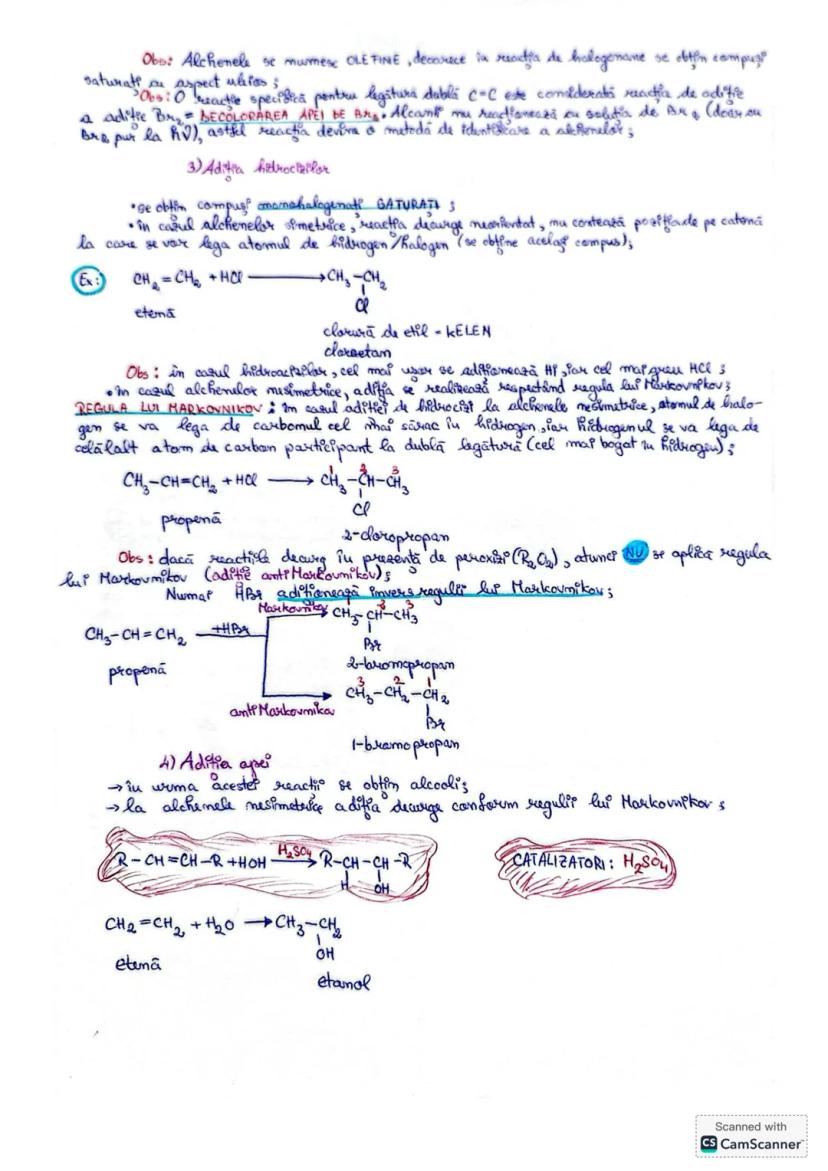 Obs: Alchenele se numesc OLEFINE, deoarece în reacția de halogenare se obțin compuși
saturați cu aspect uleios;
Obs: O reacție specifică pentru legătură dublă C=C este considerată reacția de adiție
a adiție Br₂ = DECOLORAREA APEI DE Br₂. Alcanii nu reacționează cu soluția de Br₂ (doar cu
Br₂ pur la hν), astfel reacția devine o metodă de identificare a alchenelor;
3) Adiția hidracizilor
•se obțin compuși monohalogenați SATURAȚI;
•în cazul alchenelor simetrice, reacția decurge neorientat, nu contează poziția de pe catenă
la care se vor lega atomul de hidrogen/halogen (se obține același compus);
Ex: CH₂=CH₂ +HCl → CH₃-CH₂
Cl
etenă
clorură de etil = KELEN
cloroetan
Obs: în cazul hidroacizilor, cel mai ușor se adiționează HI, iar cel mai greu HCl;
•în cazul alchenelor nesimetrice, adiția se realizează respectând regula lui Markovnikov;
REGULA LUI MARKOVNIKOV: în cazul adiției de hidracizi la alchenele nesimetrice, atomul de halo-
gen se va lega de carbonul cel mai sărac în hidrogen, iar hidrogenul se va lega de
celălalt atom de carbon participant la dublă legătură (cel mai bogat în hidrogen);
1 2 3
CH₃-CH=CH₂ +HCl → CH₃-CH-CH₃
Cl
propenă
2-cloropropan
Obs: dacă reacțiile decurg în prezență de peroxizi (R₂O₂), atunci NU se aplică regula
lui Markovnikov (adiție antiMarkovnikov);
Numai HBr adiționează invers regulii lui Markovnikov;
Markovnikov CH₃-CH-CH₃
CH₃-CH=CH₂ +HBr
Br
propenă
2-bromopropan
3 2 1
CH₃-CH₂-CH₂
antiMarkovnikov
Br
1-bromopropan
4) Adiția apei
→în urma acestei reacții se obțin alcooli;
→la alchenele nesimetrice adiția decurge conform regulii lui Markovnikov;
R-CH=CH-R +HOH H₂SO₄→ R-CH-CH-R CATALIZATORI: H₂SO₄
H OH
CH₂=CH₂ + H₂O → CH₃-CH₂
OH
etenă
etanol
Scanned with
CS CamScanner